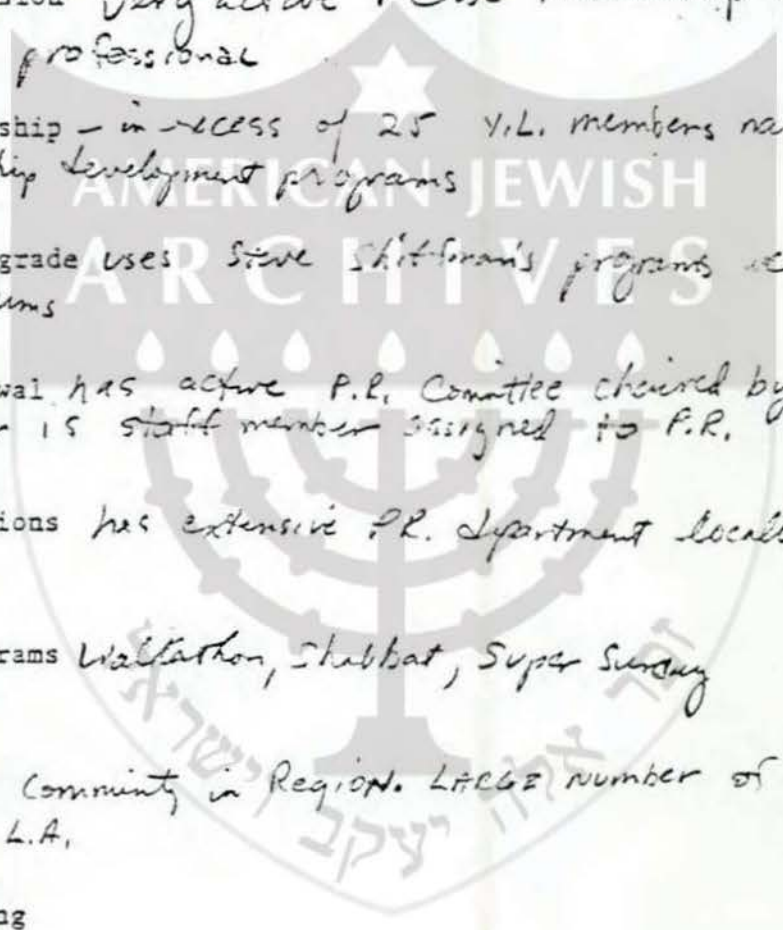 sion Very active + close
professional
ship - in excess of 25 Y.L. members
hip development programs
AMERICAN JEWISH
grade uses Steve programs
ARCHIVES
ums
wal has active P.R. Comittee chaired by
is staff member assigned to P.R.
ions has extensive P.R. department
rams Walkathon, Shabbat, Super Sunday
Comminty in Region. LARGE number of
L.A.
זכר אלה יעקב וישראל
ng